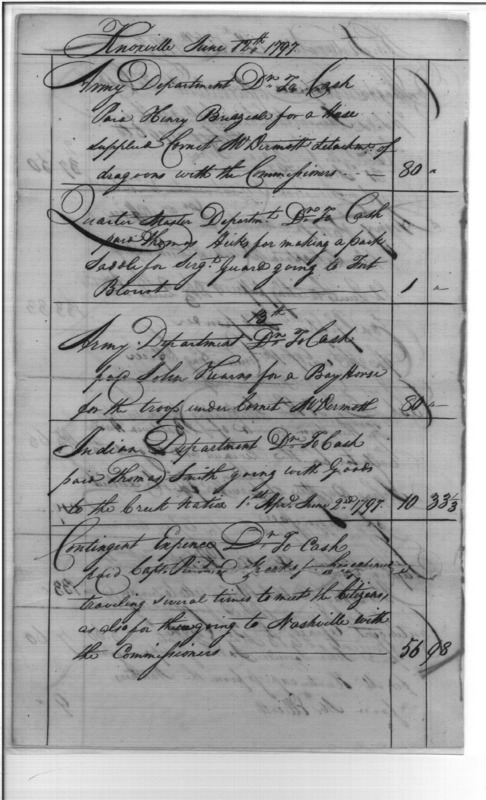 Knoxville June 12th 1797.
Army Department Dr. To Cash
Paid Henry for a Hase
supplied Cornet McDermott detachmt. of
dragoons with the Commissioners 80 "
Quarter Master Departmt. Dr. To Cash
paid Thomas Hicks for making a pack
Saddle for Sergt. Guard going to Fort
Blount 1 "
13th
Army Department Dr. To Cash
paid John Kearns for a Bay Horse
for the troop under Cornet McDermott 80 "
Indian Department Dr. To Cash
paid Thomas Smith going with Goods
to the Creek Nation 1st Apl. June 2nd 1797. 10 33 1/3
Contingent Expence Dr. To Cash
paid Capt. Richard his expences
traveling several times to meet the Citizens,
as also for going to Nashville with
the Commissioners 56 98